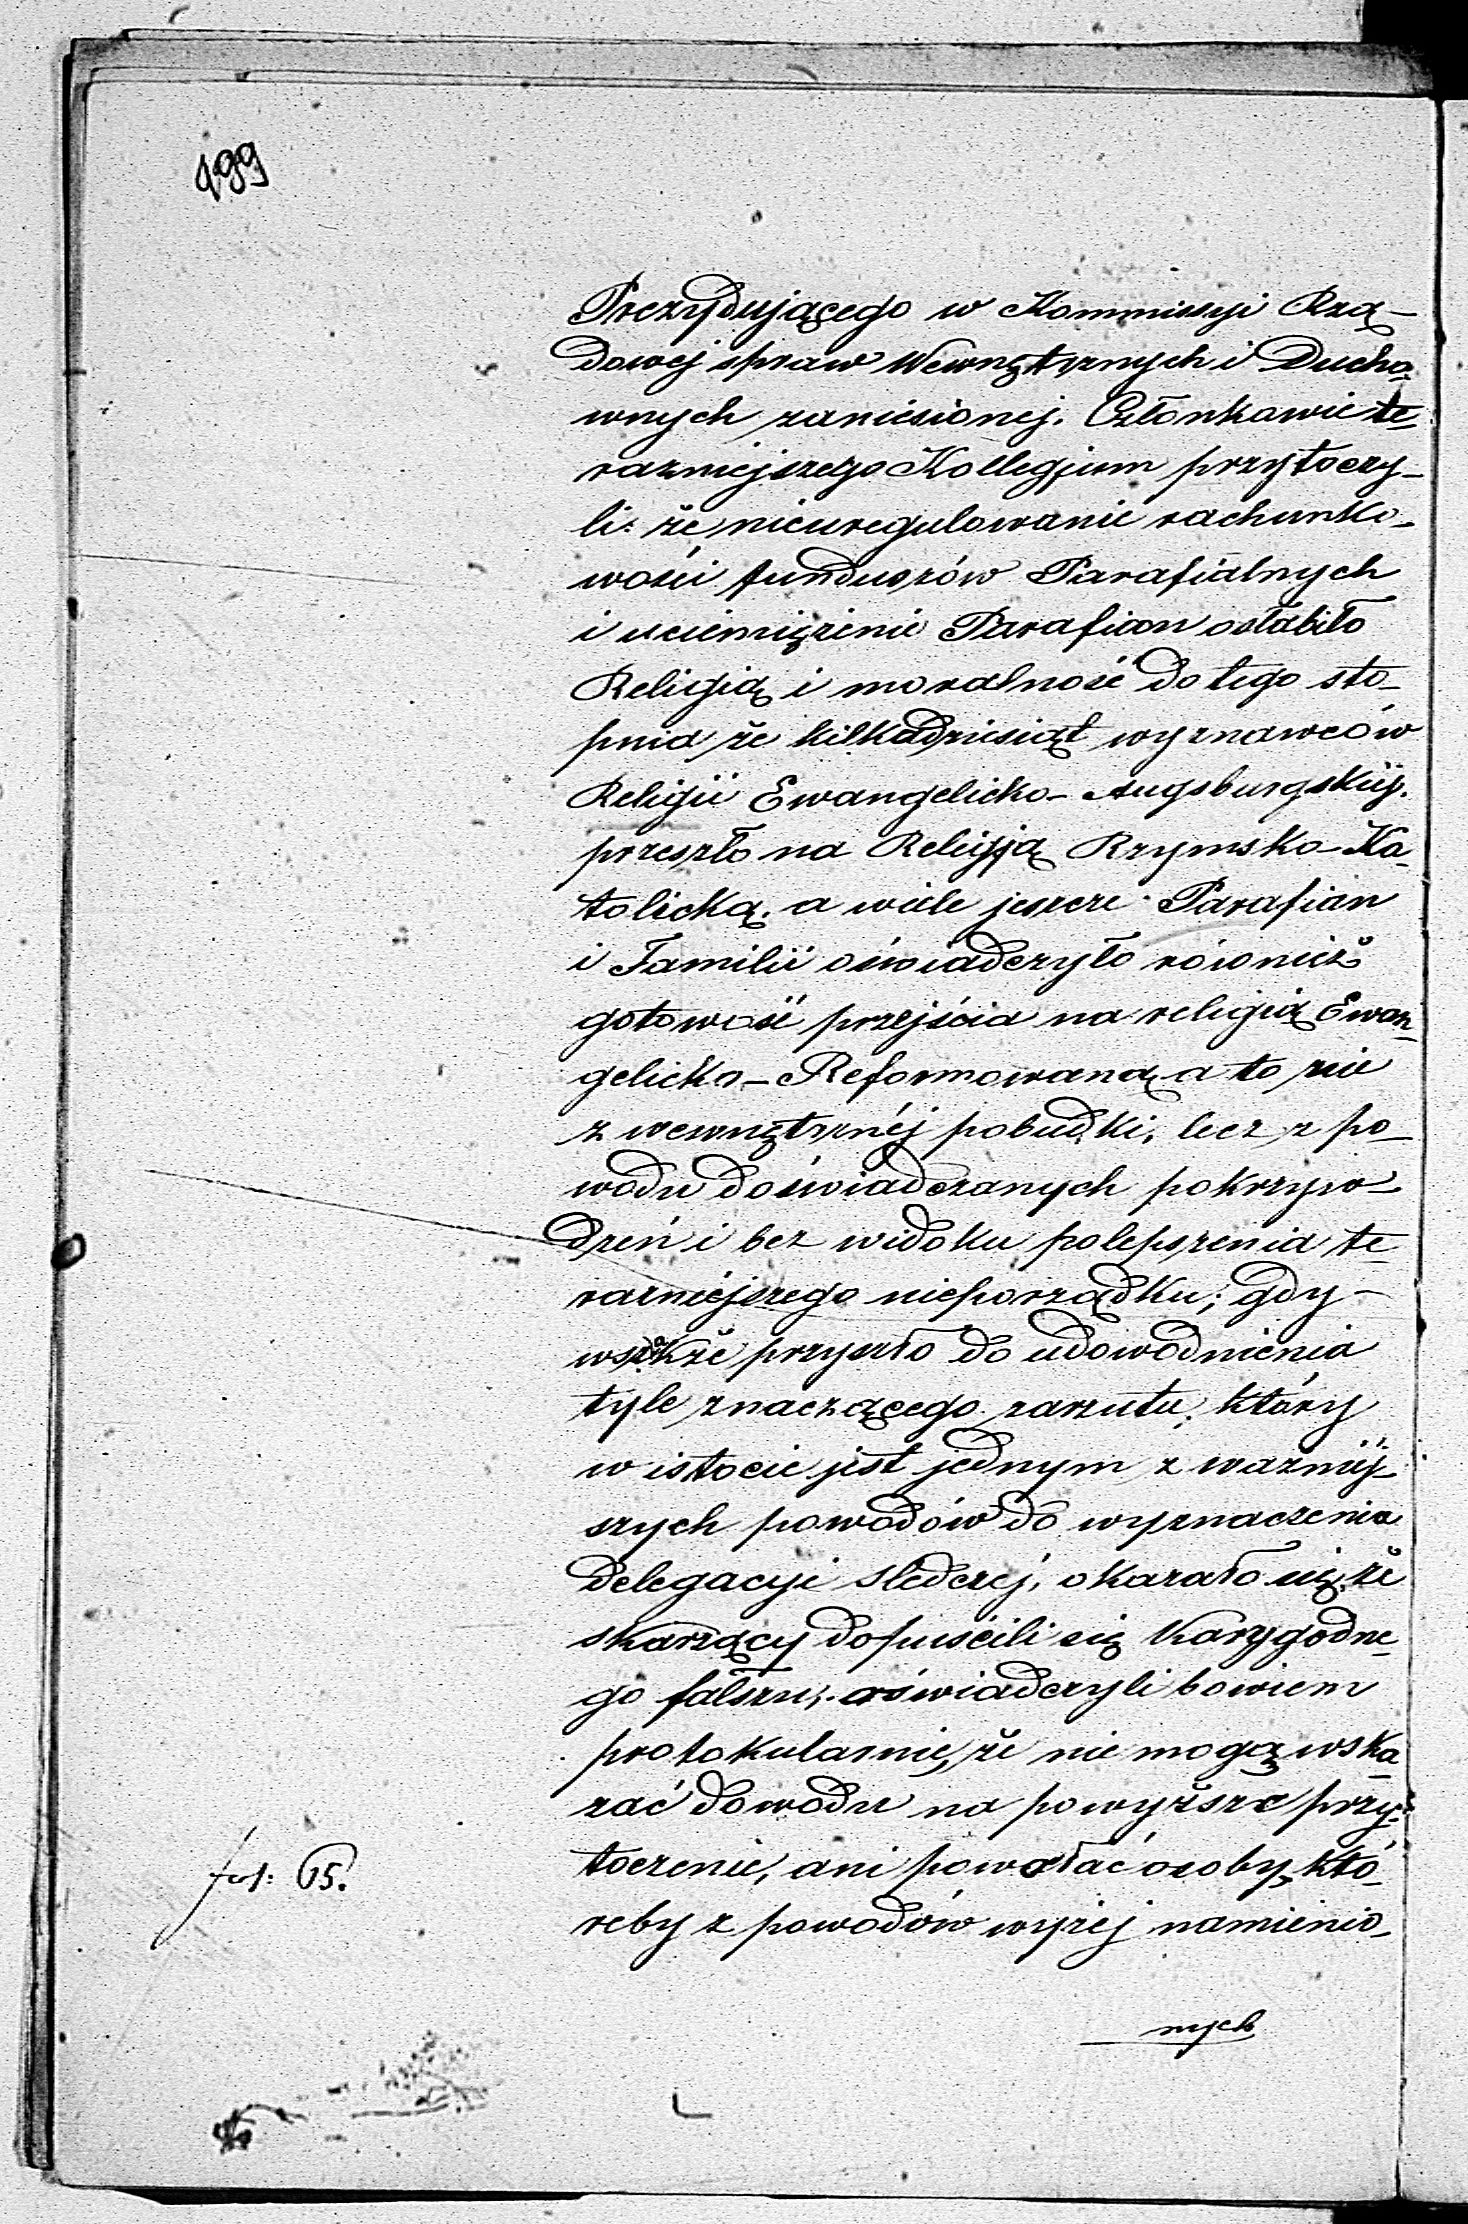 199
Prezydującego w Kommissyi Rzą-
dowej spraw Wewnętrznych i Ducho-
wnych zaniesionej. Członkowie te-
razniejszego Kollegjum przytoczy-
li: że nieuregulowanie rachunko-
wości funduszów Parafialnych
i uciemiężenie Parafian osłabiło
Religią i moralność do tego sto-
pnia że kilkadziesiąt wyznawców
Religii Ewangelicko-Augsburgskiej.
przeszło na Religją Rzymsko-Ka-
tolicką, a wiele jeszcze Parafian
i Familii oświadczyło również
gotowość przejścia na religią Ewan-
gelicko-Reformowaną, a to nie
z wewnętrznéj pobudki, lecz z po-
wodu doświadczanych pokrzyw-
dzeń i bez widoku polepszenia te-
razniejszego nieporządku; gdy-
wszakże przyszło do udowodnienia
tyle znaczącego zarzutu, który
w istocie jest jednym z ważniej-
szych powodów do wyznaczenia
Delegacyi śledczej, okazało się, że
skarżący dopuścili się karygodne-
go fałszu, oświadczyli bowiem
protokularnie, że nie mogą wska-
zać dowodu na powyższe przy-
toczenie, ani powołać osoby, któ-
reby z powodów wyżej namienio-
fol: 65.
nych